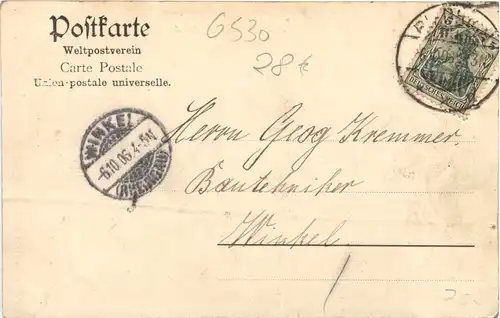 Postkarte
Weltpostverein
Carte Postale
Union postale universelle.
6530
28 €
WINKEL
-6.10.06.4-5N
(RHEINGAU)
DEUTSCHES REICH
Herrn Georg Kremmer.
Bautechniker
Winkel.